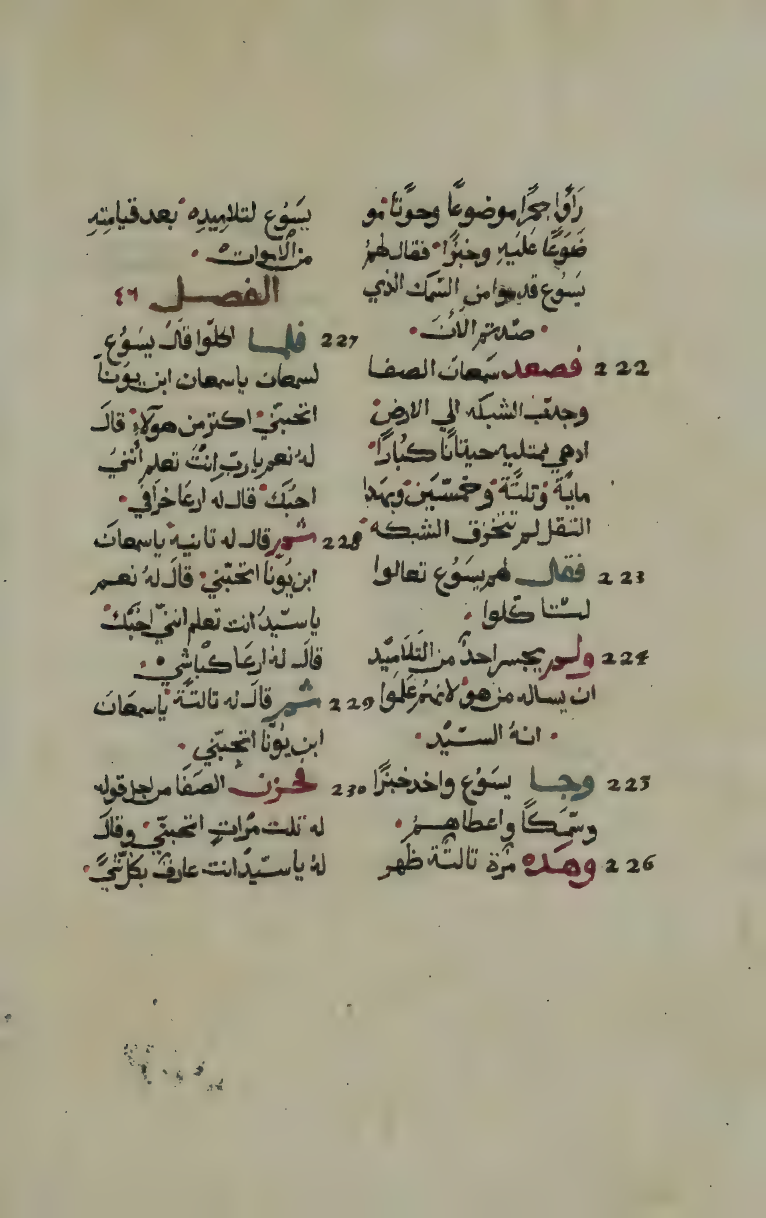 رَأَوا جمرًا موضوعًا وحوتًا مو
ضَوَعًا عَلَيهِ وخبزًا فقال لهمُ
يَسَوُع قدموا من السَّمك الذي
صَدتم الأنَ
222 فصعد سَمعانَ الصفا
وجدف الشبكه الي الارض
ادهي ممتليه حيتانًا كبُارًا
مايَة وتلتَة وخمسَين وبهدا
التقل لم تتخرق الشبكه
223 فقال لهم يسَوُع تعالوا
لستَا كلوا
224 ولم يجسر احدٌ من التَلاميَد
ان يساله من هو لانهُم عَلموا
انهُ السيَد
225 وجا يسَوُع واخد خبزًا
وسَمَكًا واعطاهم
226 وهَده مرَة تالتَة ظَهر
يسَوُع لتلاميده بعد قيامتِهِ
من الأموات
الفصل ٤٦
227 فلما اكلوا قالَ يسَوُع
لسمعان ياسمعان ابن يوَنا
اتحبَني اكتر من هوَلاء قالَ
لهُ نعم يارب انتَ تعلم أنني
احبَك قال له ارعَا خرافي
228 ثم قال له تانيه ياسمعانَ
ابن يُونا اتحبَني قالَ لهُ نعم
ياسيَدُ انت تعلم انني احبَك
قالَ لهُ ارعَا كباشي
229 ثم قالَ له تالتَة ياسمعَانَ
ابن يُونَا اتحبَني
230 فحزن الصَفَا من اجل قوله
له تلت مَرات اتحبني وقالَ
لهُ ياسيَد انت عارف بكل شيً